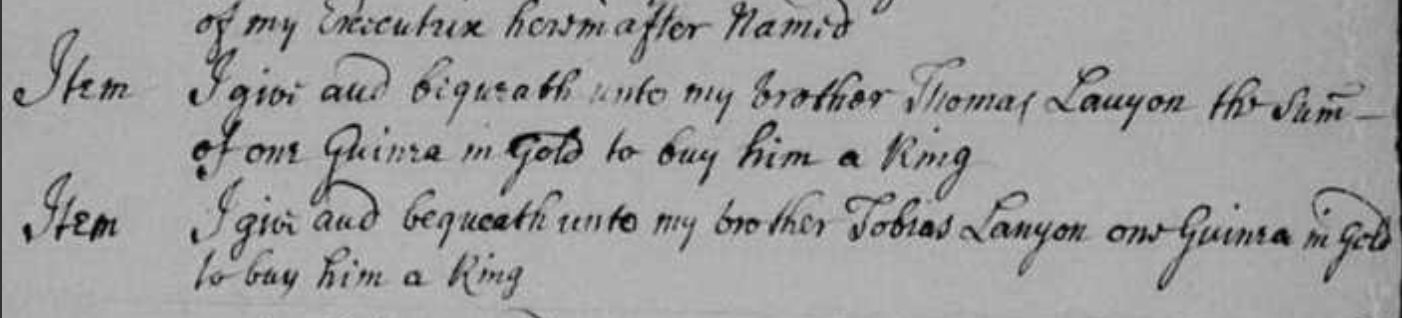 of my Executrix hereinafter Named
Item I give and bequeath unto my brother Thomas Lanyon the Sum̄
of one Guinea in Gold to buy him a Ring
Item I give and bequeath unto my brother Tobias Lanyon one Guinea in Gold
to buy him a Ring